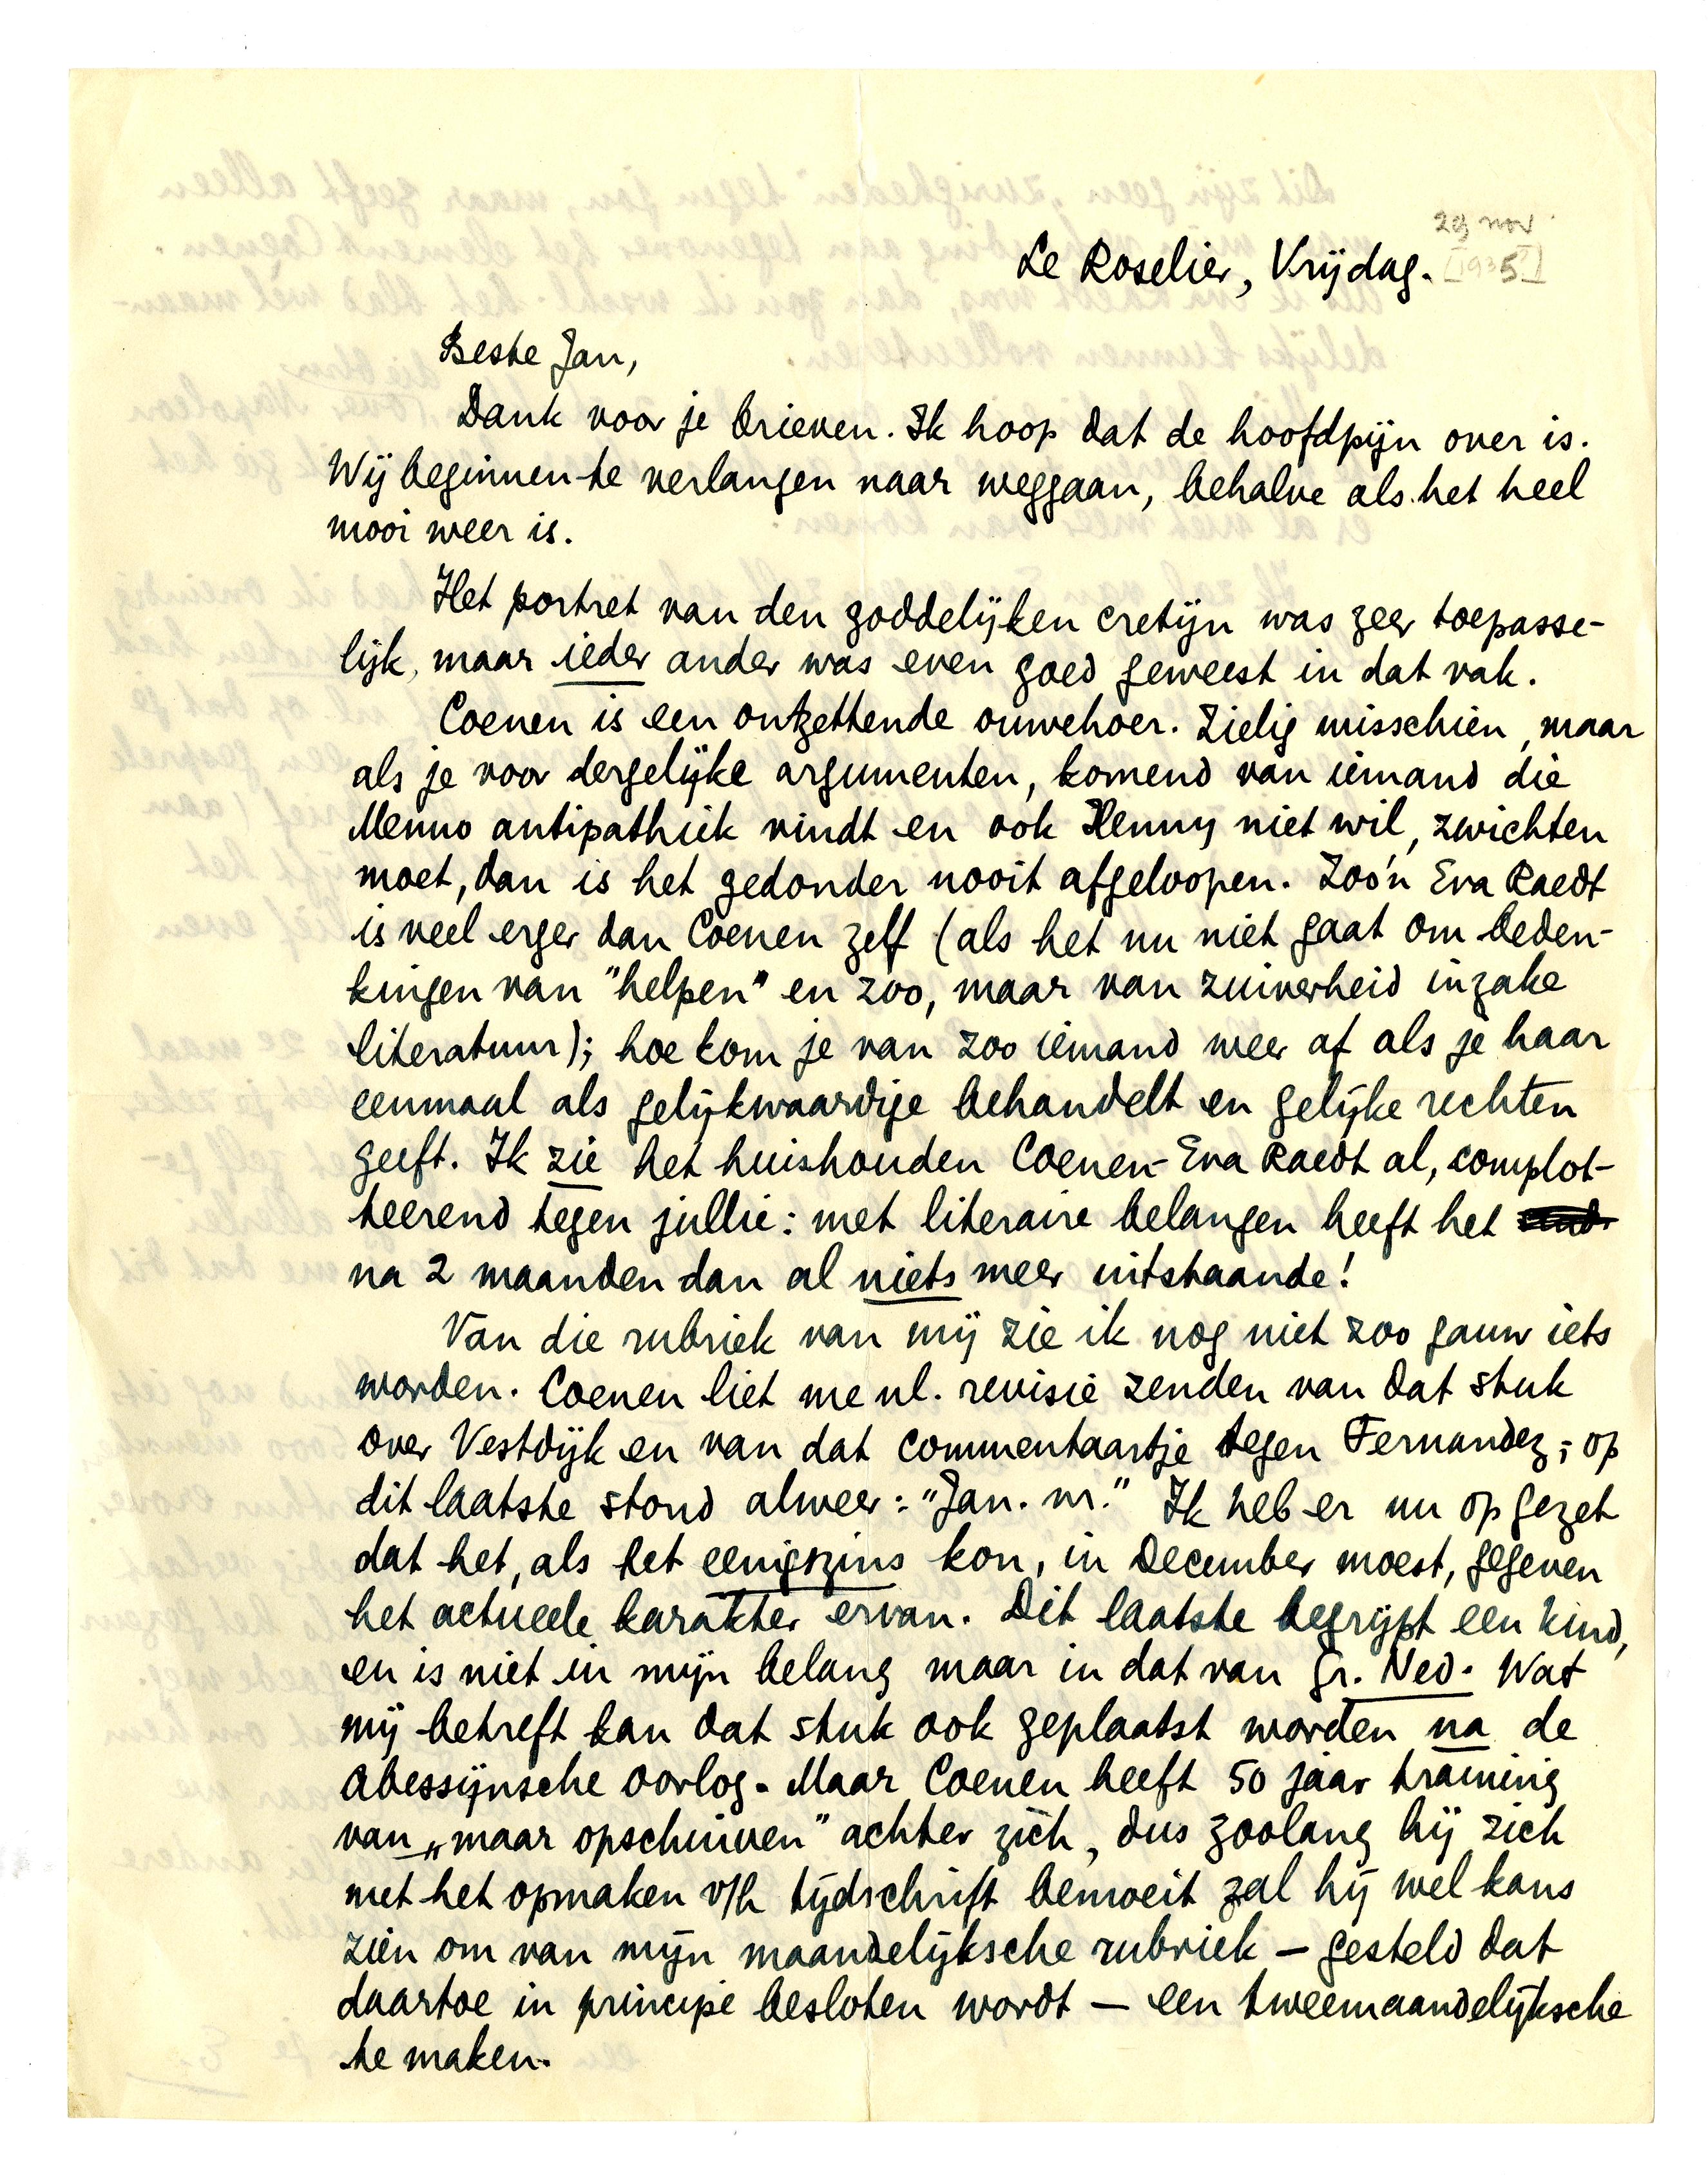 29 nov
Le Roselier, Vrijdag. [1935]
Beste Jan,
Dank voor je brieven. Ik hoop dat de hoofdpijn over is.
Wij beginnen te verlangen naar weggaan, behalve als het heel
mooi weer is.
Het portret van den goddelijken cretijn was zeer toepasse-
lijk, maar ieder ander was even goed geweest in dat vak.
Coenen is een ontzettende ouwehoer. Zielig misschien, maar
als je voor dergelijke argumenten, komend van iemand die
Menno antipathiek vindt en ook Henny niet wil, zwichten
moet, dan is het gedonder nooit afgeloopen. Zoo'n Eva Raedt
is veel erger dan Coenen zelf (als het nu niet gaat om beden-
kingen van "helpen" en zoo, maar van zuiverheid inzake
literatuur); hoe kom je van zoo iemand weer af als je haar
eenmaal als gelijkwaardige behandelt en gelijke rechten
geeft. Ik zie het huishouden Coenen-Eva Raedt al, complot-
teerend tegen jullie: met literaire belangen heeft het
na 2 maanden dan al niets meer uitstaande!
Van die rubriek van mij zie ik nog niet zoo gauw iets
worden. Coenen liet me nl. revisie zenden van dat stuk
over Vestdijk en van dat commentaartje tegen Fernandez; op
dit laatste stond alweer: "Jan. nr." Ik heb er nu op gezet
dat het, als het eenigszins kon, in December moest, gegeven
het actueele karakter ervan. Dit laatste begrijpt een kind,
en is niet in mijn belang maar in dat van Gr. Ned. Wat
mij betreft kan dat stuk ook geplaatst worden na de
Abessijnsche oorlog. Maar Coenen heeft 50 jaar training
van „maar opschuiven" achter zich, dus zoolang hij zich
met het opmaken v/h tijdschrift bemoeit zal hij wel kans
zien om van mijn maandelijksche rubriek — gesteld dat
daartoe in principe besloten wordt — een tweemaandelijksche
te maken.